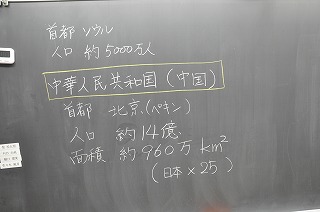 首都 ソウル
人口 約5000万人
中華人民共和国(中国)
首都 北京(ペキン)
人口 約14億
面積 約960万km²
(日本×25)